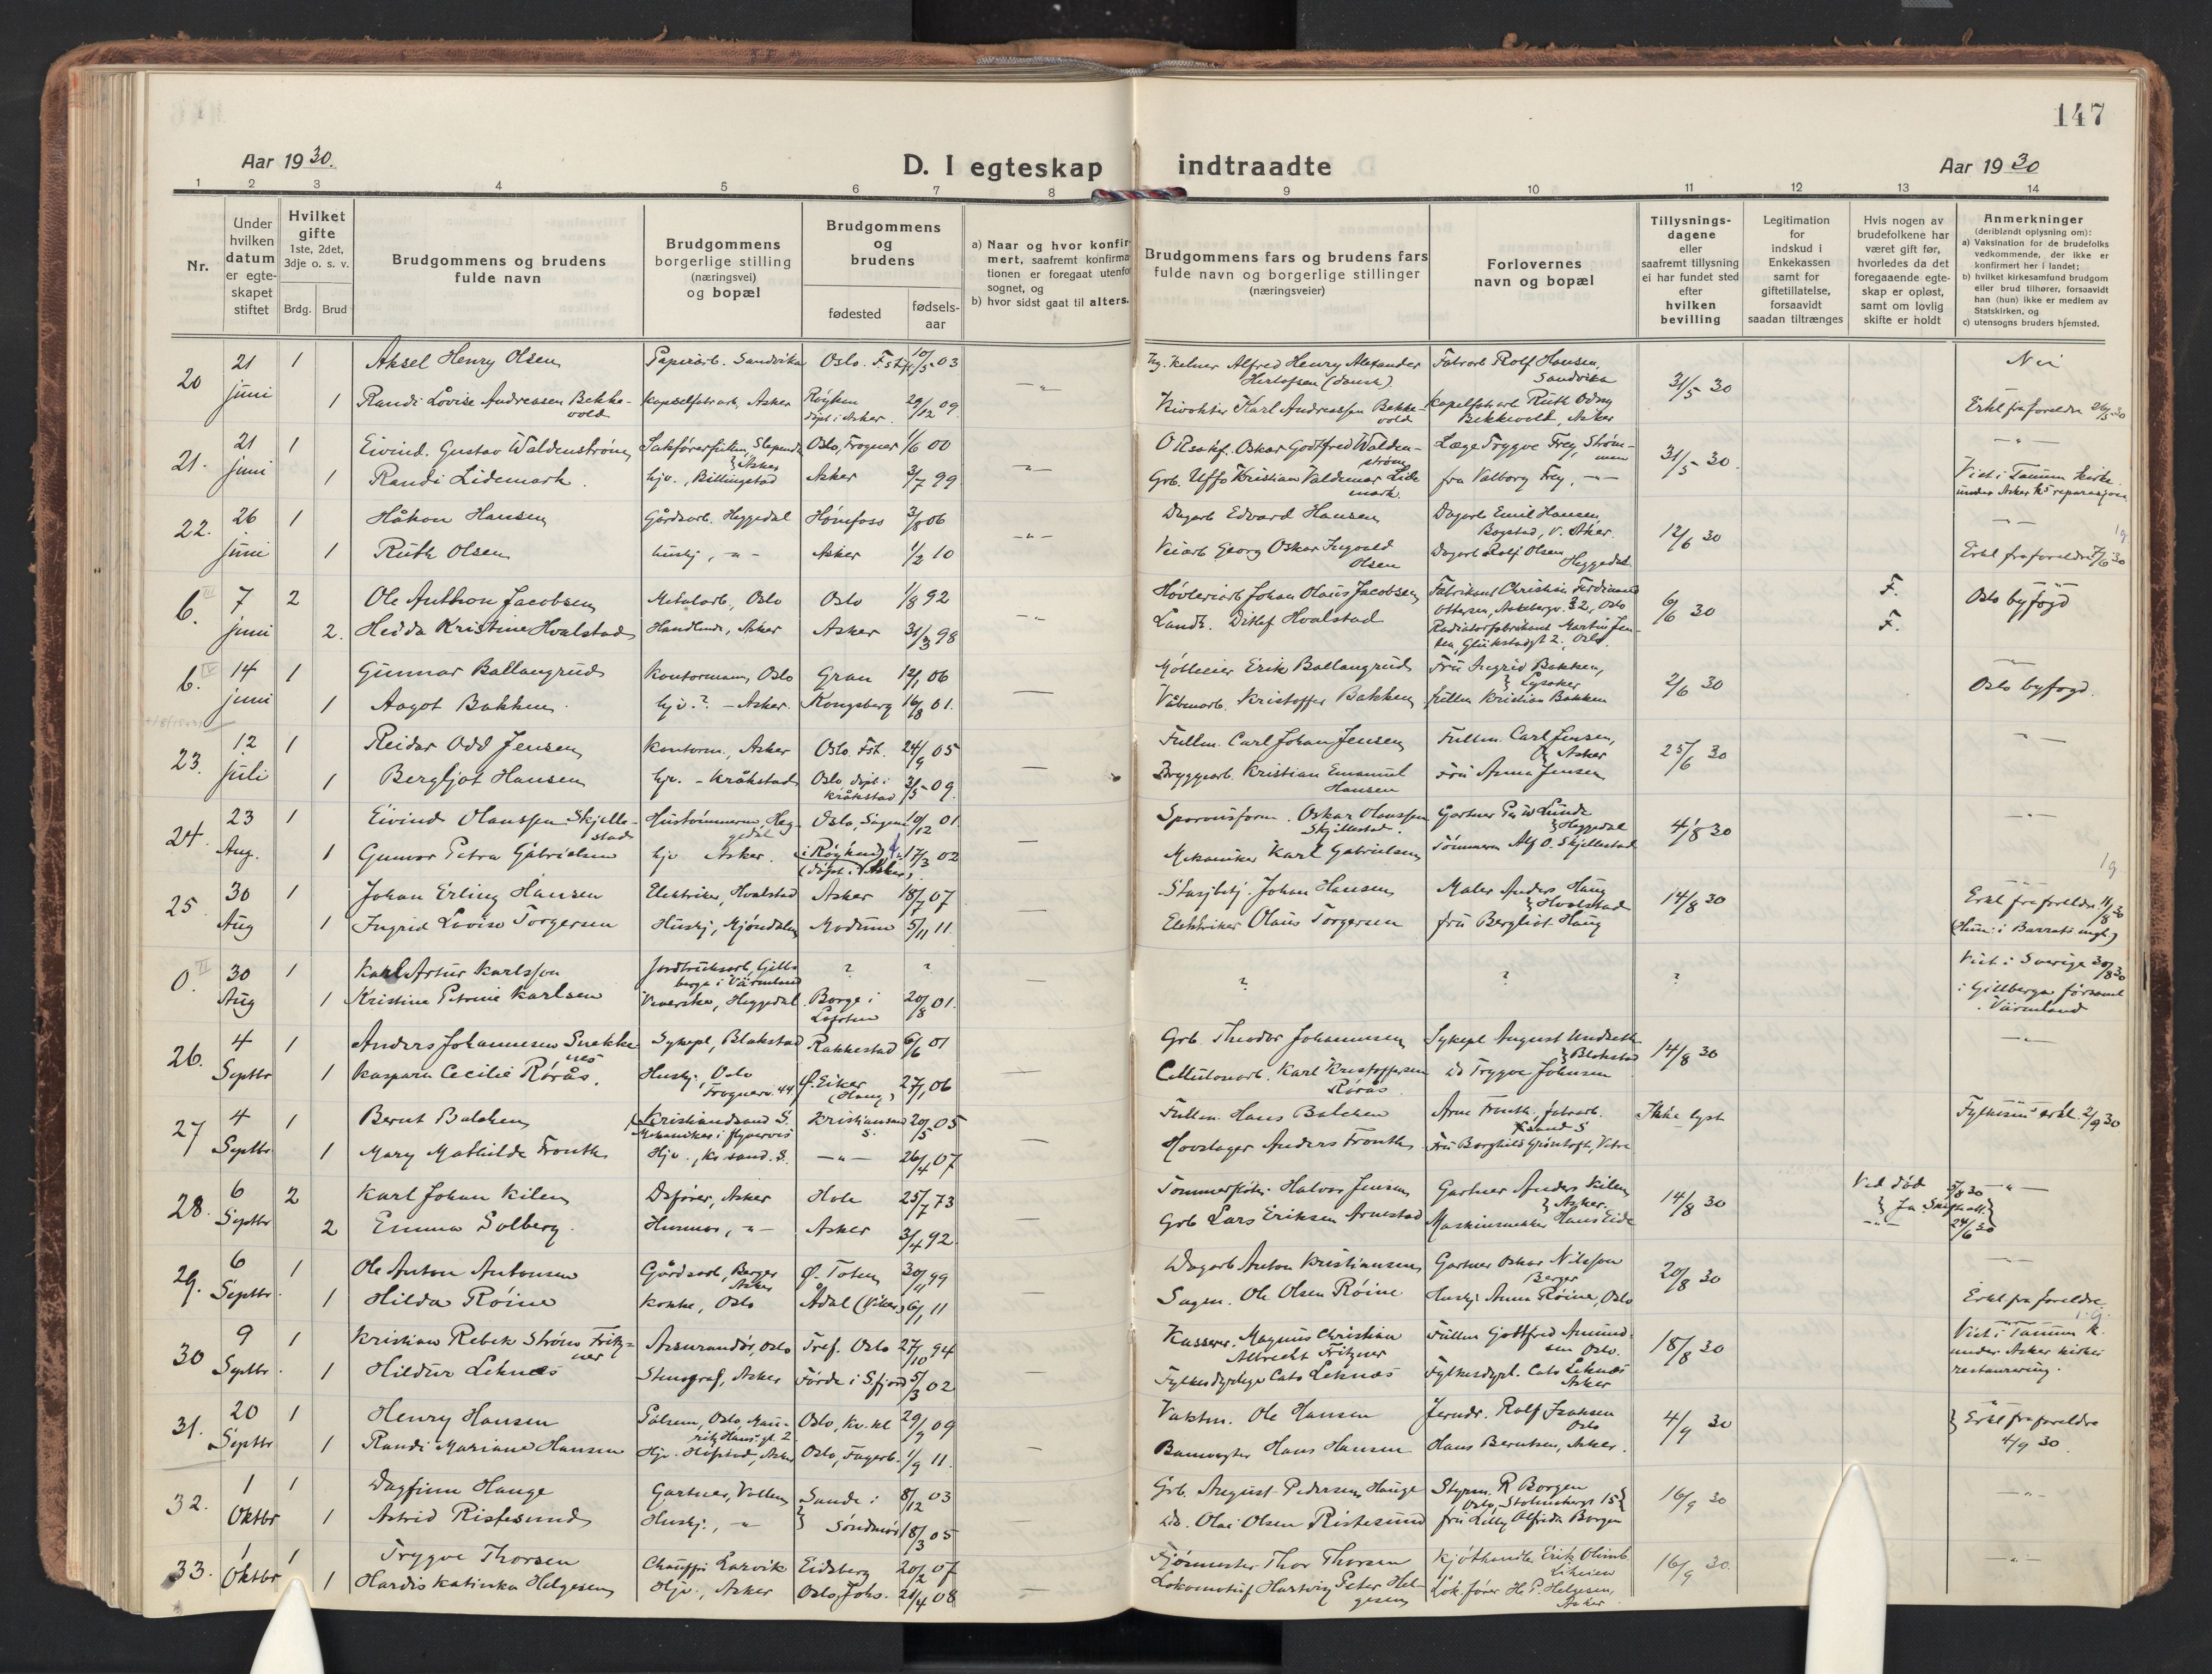 147
Aar 1930.
D. I egteskap indtraadte
Aar 1930
1 2 3 4 5 6 7 8 9 10 11 12 13 14
Nr.
Under hvilken datum er egteskapet stiftet
Hvilket gifte 1ste, 2det, 3dje o. s. v.
Brdg. Brud
Brudgommens og brudens fulde navn
Brudgommens borgerlige stilling (næringsvei) og bopæl
Brudgommens og brudens
fødested
fødsels-aar
a) Naar og hvor konfirmert, saafremt konfirmationen er foregaat utenfor sognet, og
b) hvor sidst gaat til alters.
Brudgommens fars og brudens fars fulde navn og borgerlige stillinger (næringsveier)
Forlovernes navn og bopæl
Tillysnings-dagene eller saafremt tillysning ei har fundet sted efter hvilken bevilling
Legitimation for indskud i Enkekassen samt for giftetillatelse, forsaavidt saadan tiltrænges
Hvis nogen av brudefolkene har været gift før, hvorledes da det foregaaende egteskap er opløst, samt om lovlig skifte er holdt
Anmerkninger (deriblandt oplysning om):
a) Vaksination for de brudefolks vedkommende, der ikke er konfirmert her i landet;
b) hvilket kirkesamfund brudgom eller brud tilhører, forsaavidt han (hun) ikke er medlem av Statskirken, og
c) utensogns bruders hjemsted.
20 21 juni 1 Aksel Henry Olsen Papirarb. Sandvika Oslo 10/5 03 Alfred Henry Alexander Fabrarb Rolf Hansen, Sandvika 31/5 30 Nei
1 Randi Lovise Andreassen Bekkevold kapselfabrarb, Asker Røyken døpt i Asker 29/12 09 Karl Andreassen Bekkevold Kapselfabrarb Ruth Odny Bekkevold, Asker Erkl fra foreldre 26/5 30
21. 21 juni 1 Eivind Gustav Waldenstrøm Sakførerfullm, Slependen Asker Oslo, Frogner 1/6 00 Oskar Godtfred Waldenstrøm Læge Trygve Frey, Strømmen 31/5 30
1 Randi Lidemark. hjv., Billingstad Asker 3/7 99 Grb. Uffo Kristian Valdemar Lidemark. fru Valborg Frey, Viet i Tanum kirke under Asker ks reparasjon
22. 26 juni 1 Håkon Hansen Gårdsarb. Heggedal Hønefoss 3/8 06 Dagarb Edvard Hansen Dagarb Emil Hansen, Bogstad, V. Aker. 12/6 30
1 Ruth Olsen hushj, Asker 1/2 10 Veiarb Georg Oskar Ingvald Olsen Dagarb Rolf Olsen Heggedal. Erkl fra foreldre 7/6 30
b. III 7 juni 2 Ole Anthon Jacobsen Metalarb, Oslo Oslo 1/8 92 Høvleriarb Johan Olaus Jacobsen Fabrikant Christian Ferdinand Ottersen, Aakebergv. 32, Oslo 6/6 30 F. Oslo byfogd
2. Hedda Kristine Hvalstad Handlende, Asker Asker 31/3 98 Landh. Ditlef Hvalstad Radiatorfabrikant Martin Jensen, Glükstadgt 2, Oslo. F.
b. IV 14 juni 1 Gunnar Ballangrud Kontormann, Oslo Gran 12/1 06 Møbleier Erik Ballangrud Fru Ingrid Bakken, Lysaker 2/6 30 Oslo byfogd.
1 Aagot Bakken. hjv.? - Asker. Kongsberg 16/8 01. Våbenarb. Kristoffer Bakken Kristian Bakken
23. 12 juli 1 Reidar Odd Jensen Kontorm., Asker Oslo. Fst. 24/9 05 Fullm. Carl Johan Jensen Fullm. Carl Jensen, Asker 25/6 30
1 Bergljot Hansen hjv. - Kråkstad Oslo, døpt i Kråkstad 31/5 09. Bryggearb. Kristian Emanuel Hansen Fru Anna Jensen
24. 23 Aug. 1 Eivind Olaussen Skjellestad Hustømmerm, Heggedal Oslo, 10/12 01 Oskar Olaussen Skjellestad. Gartner Per W Lunde Heggedal 4/8 30
1 Gunvor Petra Gabrielsen hjv Asker. i Røyken (døpt i Asker) 17/3 02 Mekaniker Karl Gabrielsen Tømmerm Alf O. Skjellestad
25. 30 Aug 1 Johan Erling Hansen Elektriker, Hvalstad Asker 18/7 07 Stasjbetj. Johan Hansen Maler Anders Haug Hvalstad 14/8 30 Erkl fra foreldre 11/8 30
1 Ingrid Lovise Torgersen Hushj, Mjøndalen Modum 5/11 11. Elektriker Olaus Torgersen fru Bergliot Haug
0. II 30 Aug 1 Karl Artur Karlsson Jordbruksarb, Gillberga i Värmland ? ? ? ? ? Viet i Sverige 30/8 30
1 Kristine Petrine Karlsen Veverske, Heggedal Borge i Lofoten 20/8 01. i Gillberga församl i Värmland
26. 4 Septbr 1 Anders Johannesen Snekkenes Sykepl, Blakstad Rakkestad 6/6 01 Grb. Theodor Johannesen Sykepl August Undseth Blakstad 14/8 30
1 Kaspara Cecilie Rørås. Hushj, Oslo Frognerv. 44 Ø. Eiker (Haug) 27/1 06 Cellulosearb. Karl Kristoffersen Rørås Do Trygve Johnsen
27 4 Septbr 1 Bernt Balchen Kristiansand S. Mekaniker i flyvervæs Kristiansand S. 20/5 05 Fullm. Hans Balchen Arne Fronth, fabrarb. Krsand S Ikke lyst 2/9 30
1 Mary Mathilde Fronth Hjv., Kr sand. S. 26/4 07 Hovslager Anders Fronth Fru Borghild Grøntoft, Vetre
28. 6 Septbr 2 Karl Johan Kilen Dsfører, Asker Hole 25/7 73 Tømmerfløter Halvor Jensen Gartner Anders Kilen Asker. 14/8 30 Ved død
2 Emma Solberg. Husmor, Asker 3/4 92. Grb Lars Eriksen Arnestad Maskinsnekker Hans Eide Ja Skifteatt. 24/6 30
29. 6 Septbr. 1 Ole Anton Antonsen Gårdsarb, Berger Asker Ø. Toten 30/11 99 Dagarb Anton Kristiansen Gartner Oskar Nilsson Berger 20/8 30
1 Hilda Røine Kokke, Oslo Ådal (Viker) 6/1 11 Sagm. Ole Olsen Røine Hushj Anna Røine, Oslo Erkl fra foreldre
30 9 Septbr. 1 Kristian Rebek Strøm Fritzner Assurandør, Oslo Tref. Oslo 27/10 94 Kasserer, Magnus Christian Albrecht Fritzner Fullm Gottfred Amundsen Oslo. 18/8 30 Viet i Tanum k. under Asker kirkes restaurering.
1 Hildur Leknes Stenograf, Asker Førde i S.fjord 5/3 02 Fylkesdyrlege Cato Leknes Fylkesdyrl. Cato Leknes Asker
31. 20 Septbr 1 Henry Hansen Oslo, Oslo, 29/9 09 Vaktm. Ole Hansen Jerndr. Rolf Isaksen Oslo 4/9 30 Erkl fra foreldre 4/9 30.
1 Randi Mariane Hansen Hjv. Hofstad, Asker Oslo, Fagerb. 1/9 11. Banevogter Hans Hansen Hans Berntsen, Asker.
32. 1 Oktbr 1 Dagfinn Hauge Gartner, Vollen Sande i Søndmør 8/12 03 Grb. August Pedersen Hauge Styrm. R Borgen Oslo, 15 16/9 30
1 Astrid Ristesund Hushj., 18/3 05 Do. Olai Olsen Ristesund fru Lilly Alfrida Borgen
33. 1 Oktbr 1 Trygve Thorsen Chauffør Larvik Eidsberg 20/2 07 Fjørmester Thor Thorsen Kjøthandler Erik 16/9 30.
1 Hardis Katinka Helgesen Hjv., Asker Oslo, Johs. 21/4 08 Lokomotivf Hartvig Peter Helgesen Lok.fører H. P. Helgesen, Asker